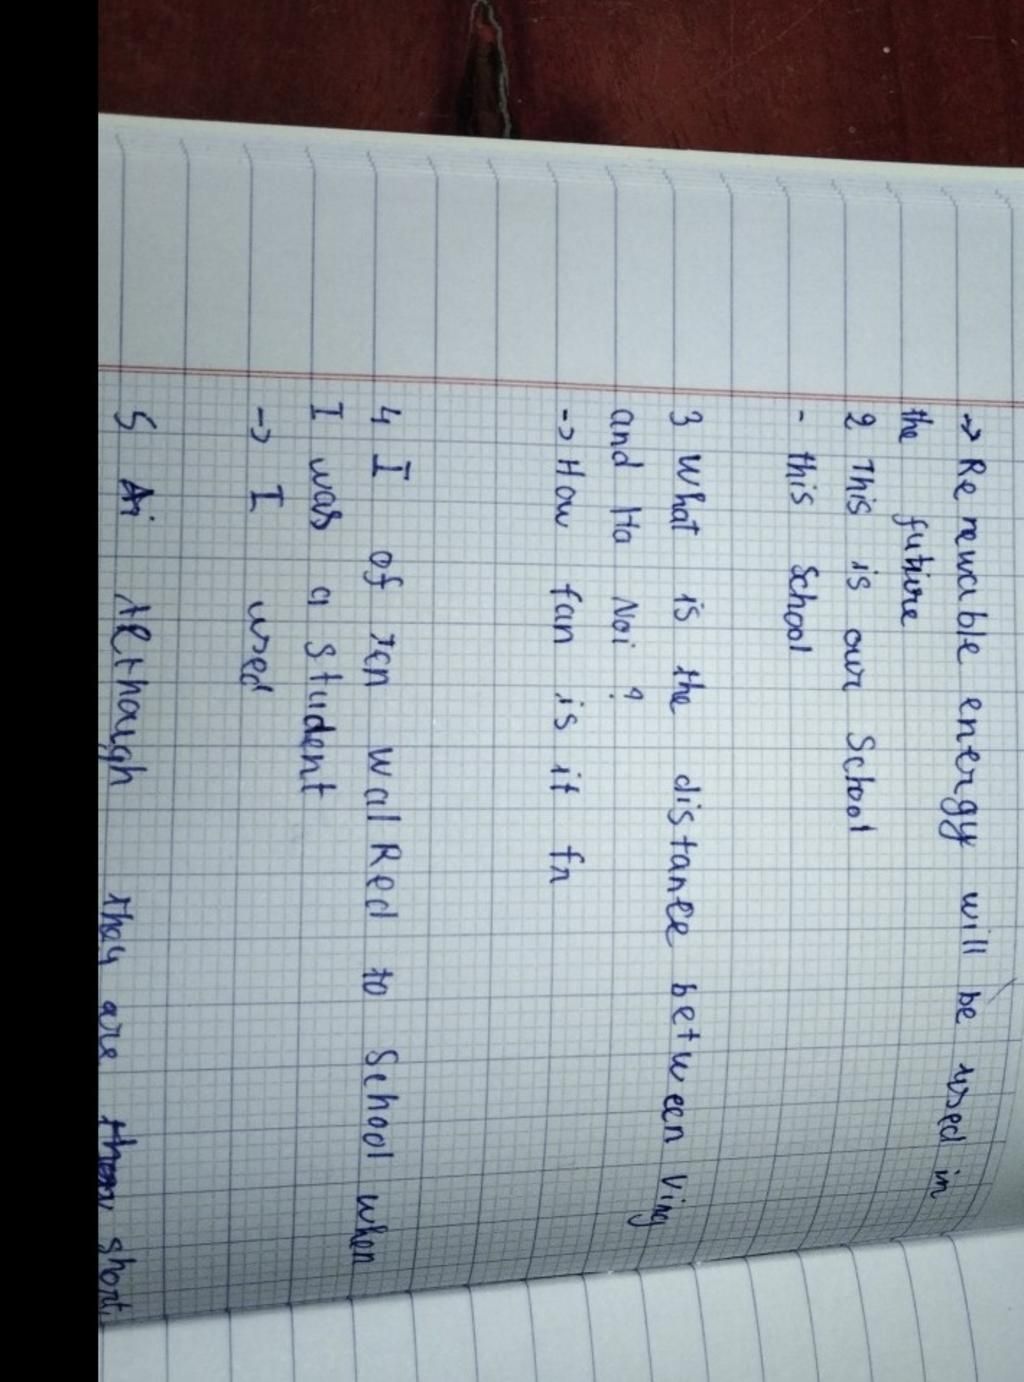 -> Renewable energy will be used in
the future
2 This is our School
- this school
3 What is the distance between Ving
and Ha Noi ?
-> How fan is it fn
4 I of ten walked to School when
I was a student
-> I used
5 Although they are short